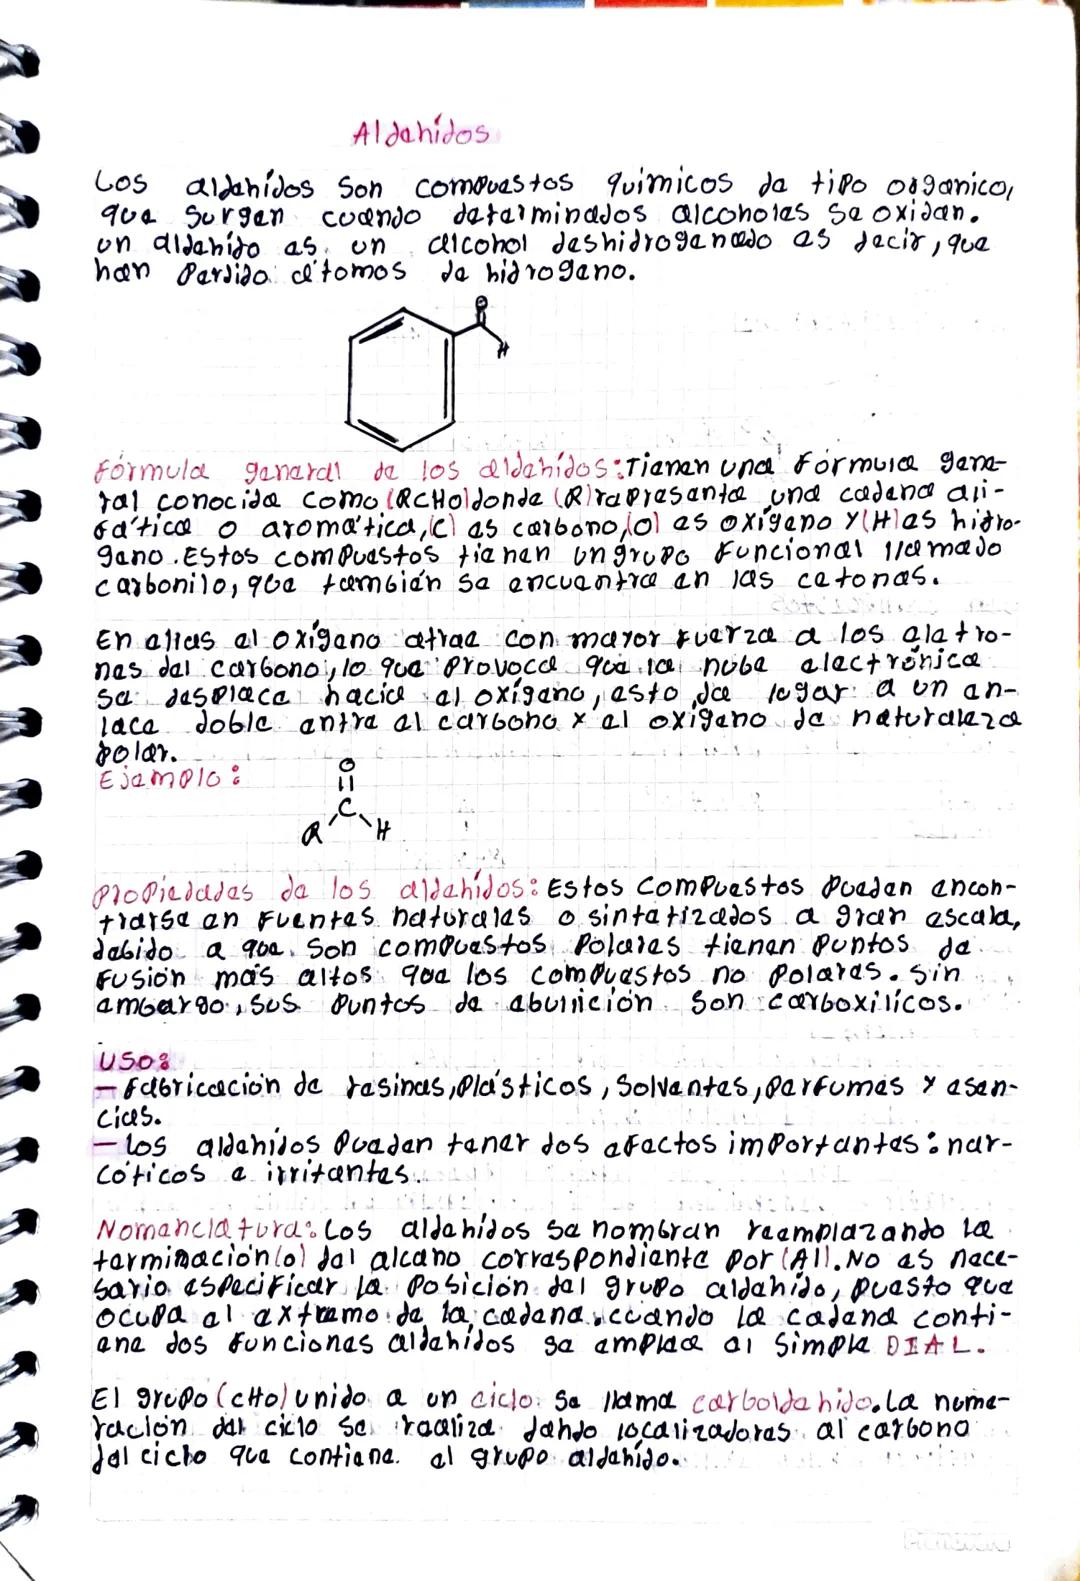 Aldehídos
Los aldehídos son compuestos químicos de tipo organico,
que surgen cuando determinados alcoholes se oxidan.
un aldehído es un alcohol deshidrogenado es decir, que
han perdido átomos de hidrogeno.
O
H
Fórmula general de los aldehídos: Tienen una fórmula gene-
ral conocida como (RCHO) donde (R) representa una cadena ali-
fática o aromática, (C) es carbono, (O) es oxígeno y (H) es hidro-
geno. Estos compuestos tienen un grupo funcional llamado
carbonilo, que también se encuentra en las cetonas.
En ellas el oxígeno atrae con mayor fuerza a los eletro-
nes del carbono, lo que provoca que la nube electrónica
se desplace hacia el oxígeno, esto da lugar a un en-
lace doble entre el carbono y el oxigeno de naturaleza
polar.
Ejemplo:
O
C
R H
Propiedades de los aldehídos: Estos compuestos pueden encon-
trarse en fuentes naturales o sintetizados a gran escala,
debido a que son compuestos polares tienen puntos de
fusión más altos que los compuestos no polares. sin
embargo, sus puntos de ebullición son carboxílicos.
USO:
- Fabricación de resinas, plásticos, solventes, perfumes y esen-
cias.
- los aldehídos pueden tener dos efectos importantes: nar-
cóticos e irritantes.
Nomenclatura: Los aldehídos se nombran reemplazando la
terminación (o) del alcano correspondiente por (Al). No es nece-
sario especificar la posición del grupo aldehído, puesto que
ocupa el extremo de la cadena, cuando la cadena conti-
ene dos funciones aldehídos se emplea el simple DIAL.
El grupo (CHO) unido a un ciclo se llama carboldehido. La nume-
ración del ciclo se realiza dando localizadores al carbono
del ciclo que contiene el grupo aldehído.